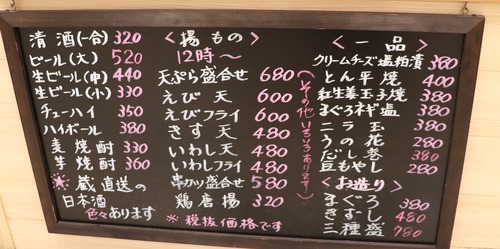 清酒(一合) 320
ビール(大) 520
生ビール(中) 440
生ビール(小) 330
チューハイ 350
ハイボール 380
麦焼酎 330
芋焼酎 360
※蔵直送の
日本酒
色々あります
<揚もの>
12時〜
天ぷら盛合せ 680
えび天 600
えびフライ 600
きす天 480
いわし天 480
いわしフライ 480
串かつ盛合せ 580
鶏唐揚 320
(その他いろいろあります)
※税抜価格です
<一品>
クリームチーズ塩粕漬 380
とん平焼 400
紅生姜玉子焼 380
まぐろネギ塩 380
ニラ玉 380
うの花 280
だし巻 380
豆もやし 280
<お造り>
まぐろ 380
きずし 480
三種盛 780